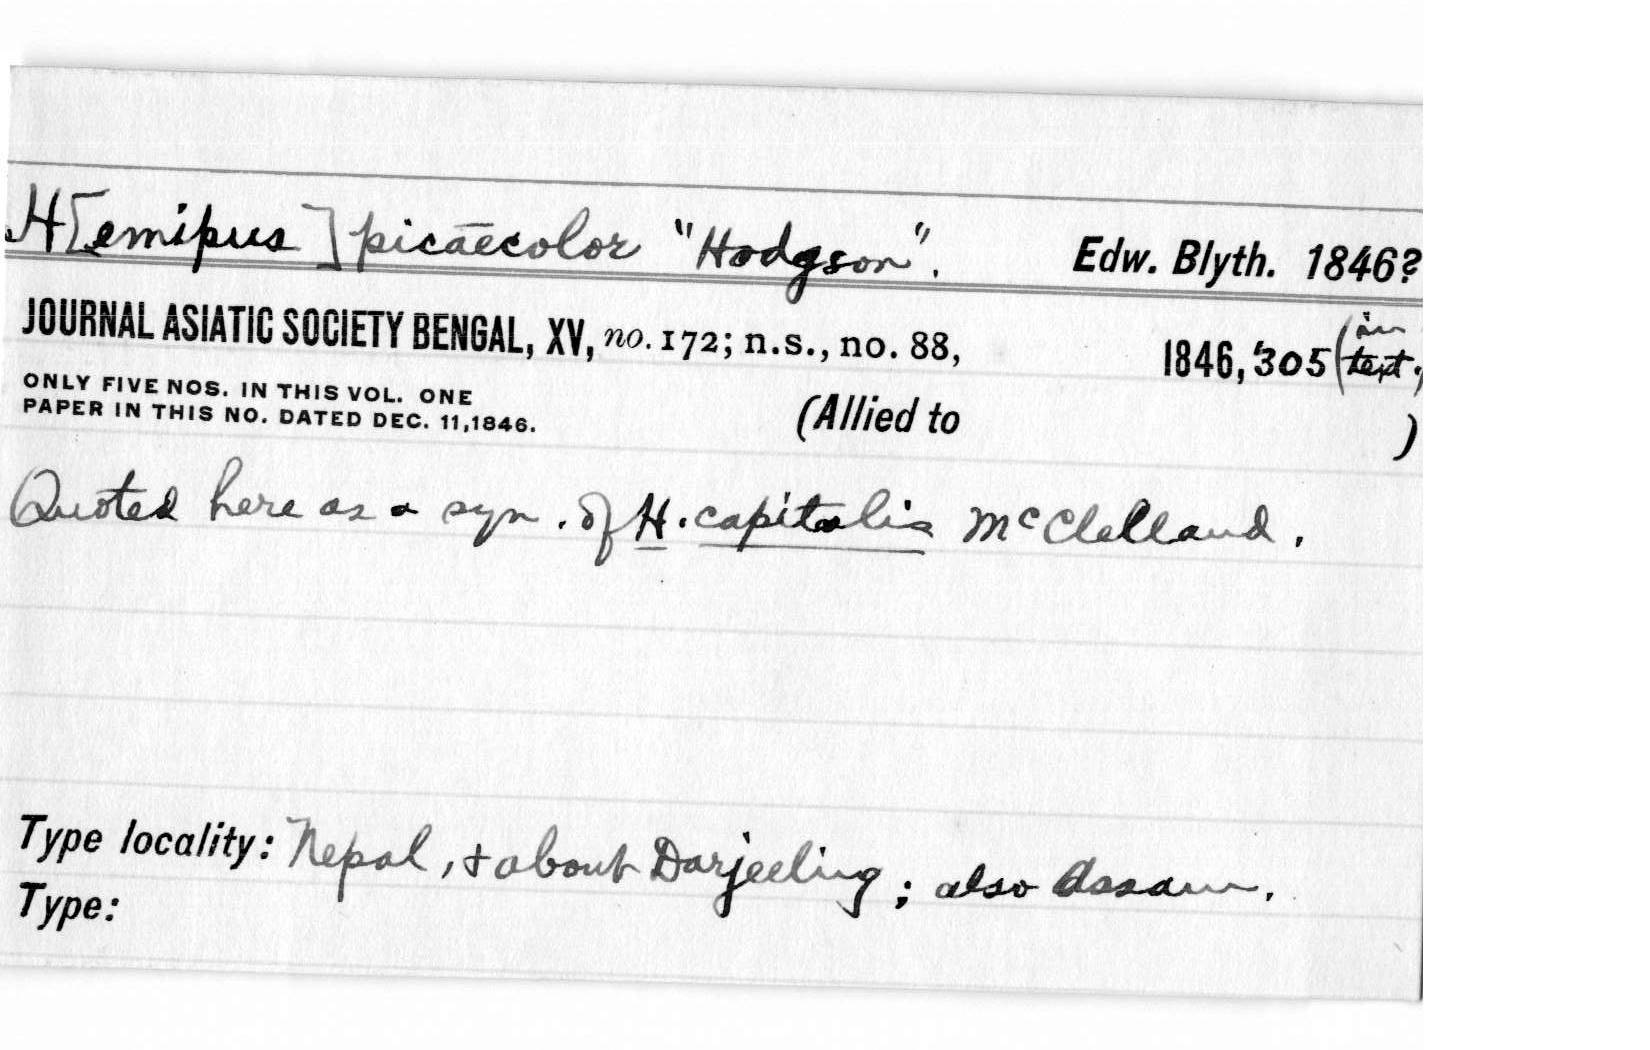 H[emipus] picaecolor "Hodgson". Edw. Blyth. 1846?
JOURNAL ASIATIC SOCIETY BENGAL, XV, no. 172; n.s., no. 88, 1846, 305 (in text.)
ONLY FIVE NOS. IN THIS VOL. ONE
PAPER IN THIS NO. DATED DEC. 11, 1846.
(Allied to )
Quoted here as a syn. of H. capitalis McClelland.
Type locality: Nepal, + about Darjeeling; also Assam.
Type: